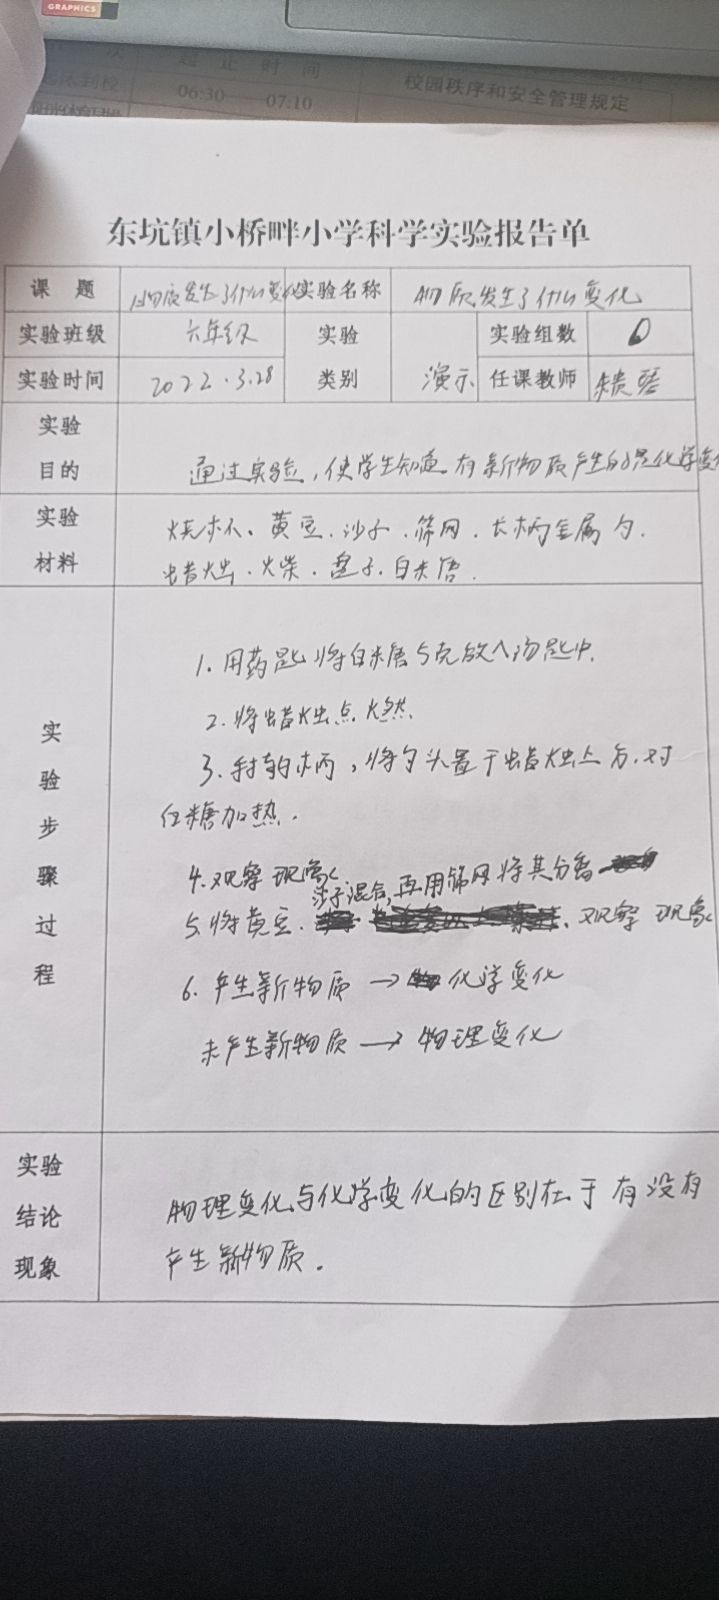 GRAPHICS
起 止 时 间
06:30 07:10
校园秩序和安全管理规定
东坑镇小桥畔小学科学实验报告单
课 题 物质发生了什么变化 实验名称 物质发生了什么变化
实验班级 六年级 实验 实验组数
实验时间 2022.3.28 类别 演示 任课教师
实验
目的 通过实验,使学生知道有新物质产生的是化学变化
实验 烧杯、黄豆、沙子、筛网、长柄金属勺、
材料 蜡烛、火柴、盘子、白糖
实验步骤过程
1. 用药匙将白糖5克放入汤匙中.
2. 将蜡烛点燃.
3. 持勺柄,将勺头置于蜡烛上方,对
白糖加热.
4. 观察现象
5. 将黄豆、沙子混合,再用筛网将其分离、观察现象
6. 产生新物质 → 化学变化
未产生新物质 → 物理变化
实验 物理变化与化学变化的区别在于有没有
结论 产生新物质.
现象